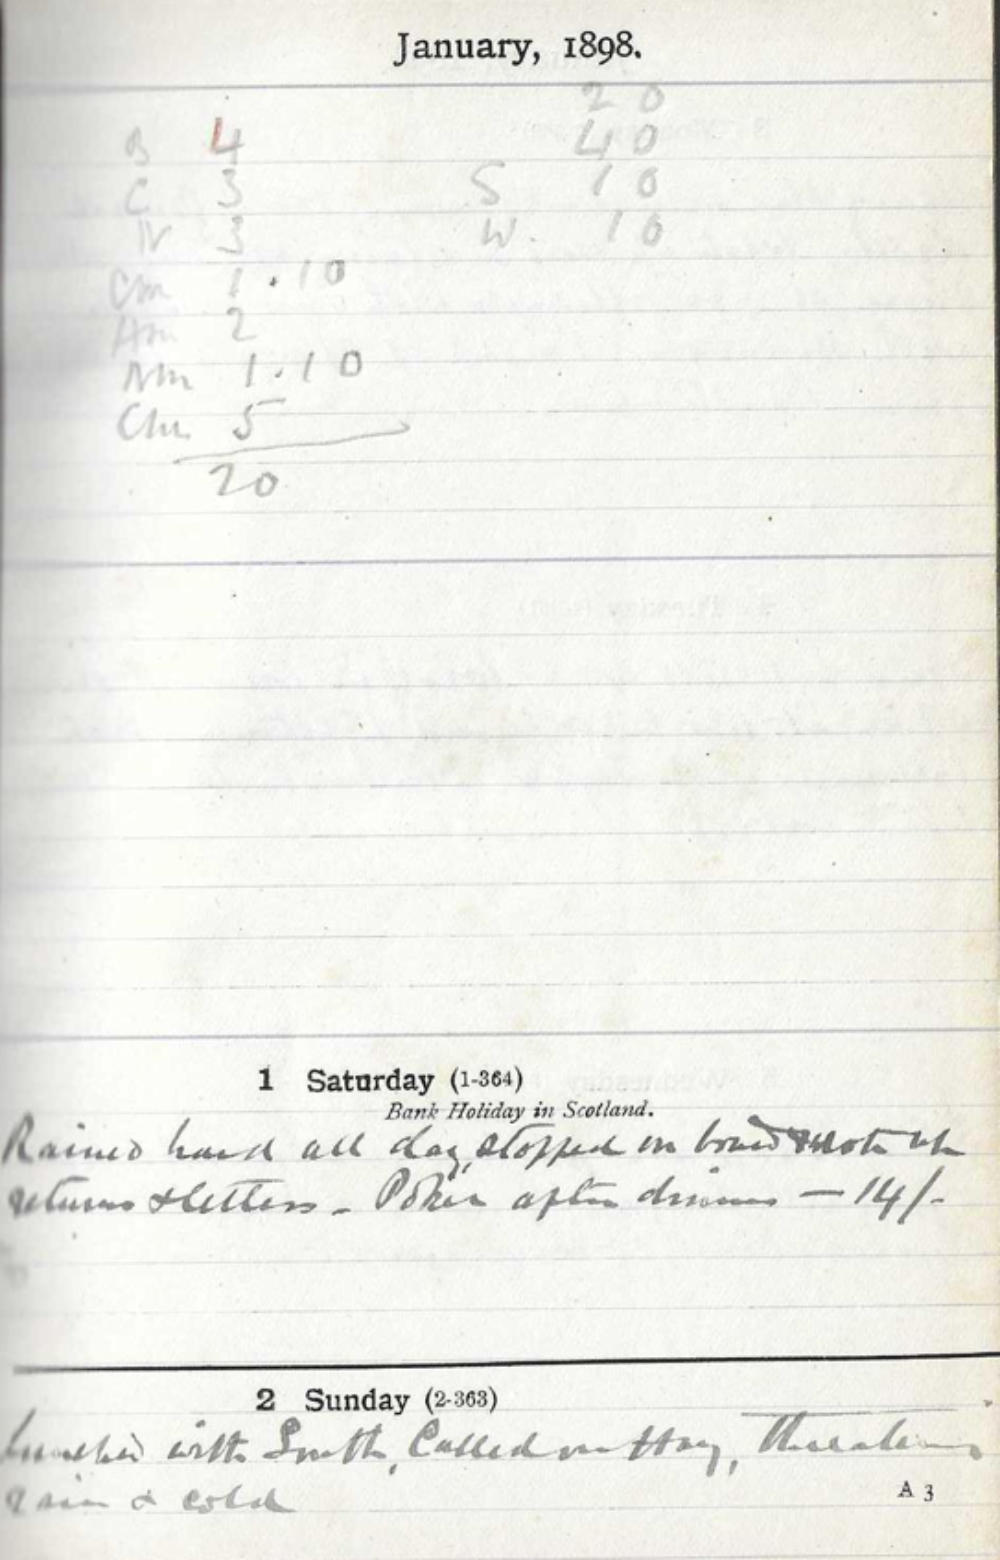 January, 1898.
20
B 4 40
C 3 S 10
N 3 W. 10
Cm 1.10
Am 2
Nm 1.10
Chr 5
20
1 Saturday (1-364)
Bank Holiday in Scotland.
Rained hard all day, stopped on board & wrote up
returns & letters - Poker after dinner - 14/-
2 Sunday (2-363)
Lunched with Smith, Called on Hay, Threatening
rain & cold
A 3